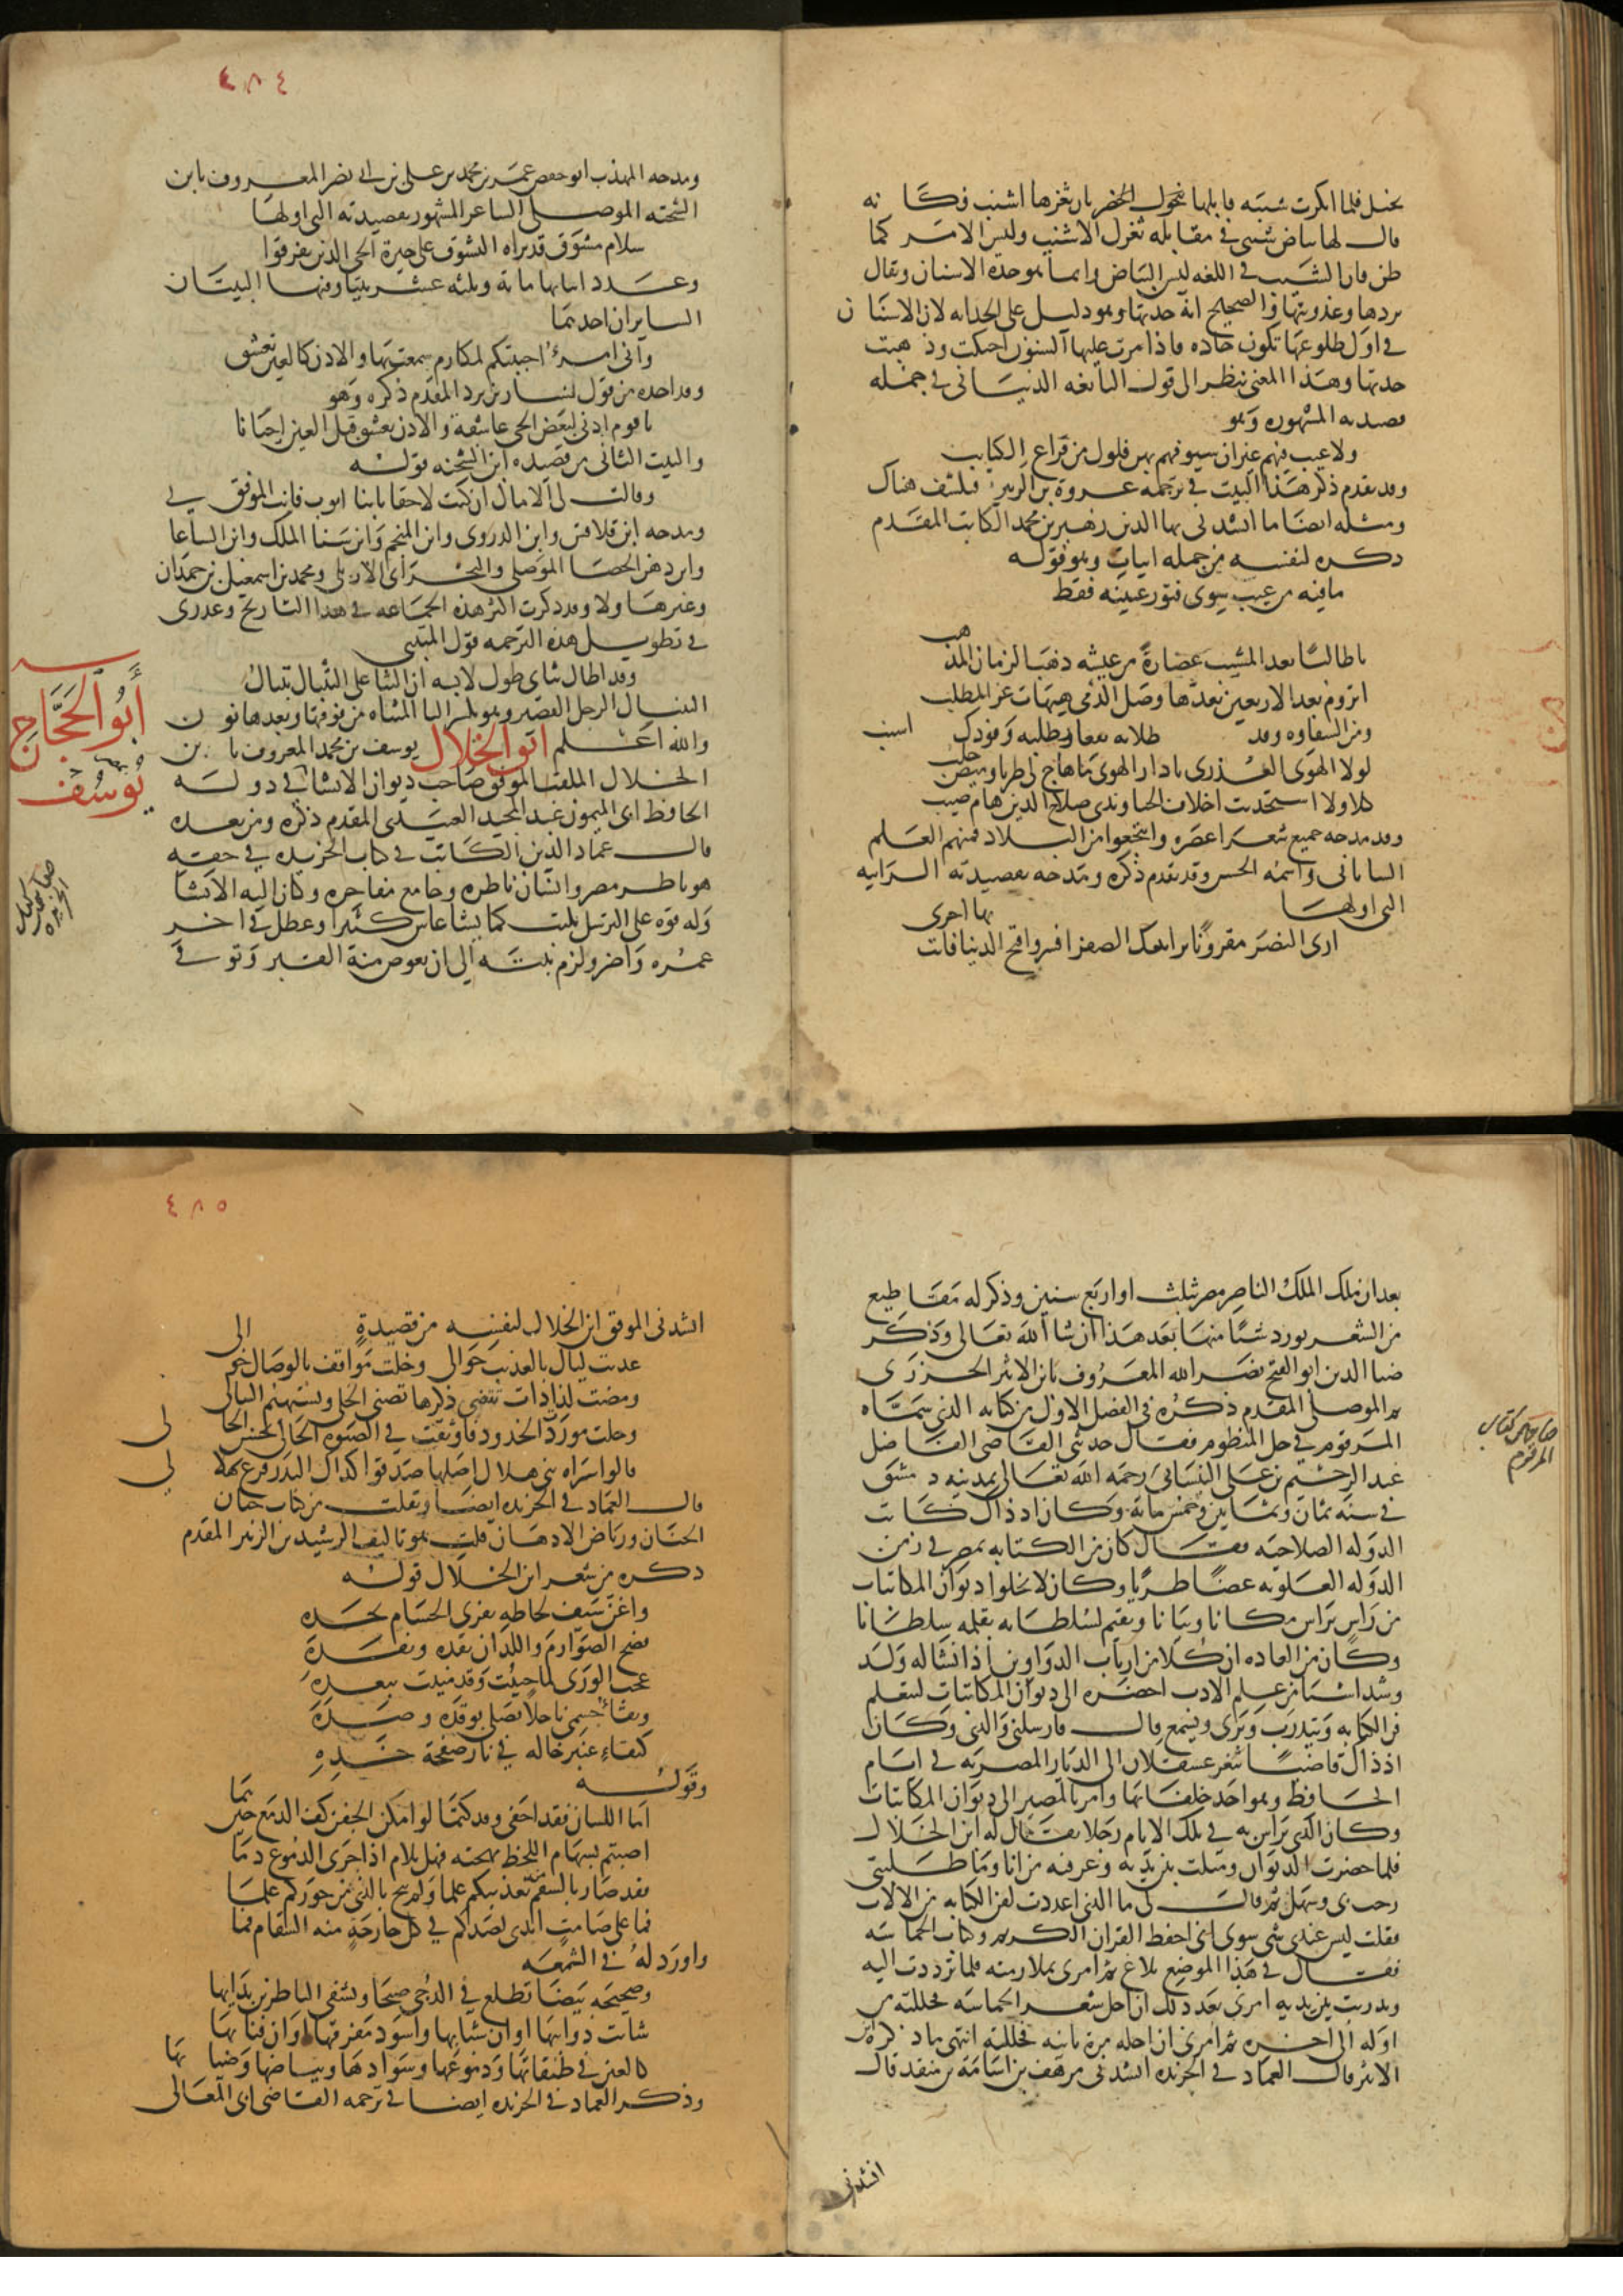 نخيل فلما انكرت شيبه قابلها نحول الخضر بان ثغرها اشنب فكا نه
قال لها بياض شيبى في مقابله ثغرك الاشنب وليس الامر كما
ظن فان الشنب في اللغه ليس البياض وانما هو حده الاسنان ويقال
بردها وعذوبتها والصحيح انه حدتها وهو دليل على الحداثه لان الاسنا ن
في اول طلوعها تكون حاده فاذا مرت عليها السنون احتكت وذهبت
حدتها وهذا المعنى ينظر الى قول النابغه الذبيانى في جمله
قصيدته المشهوره وهو
ولا عيب فيهم غير ان سيوفهم بهن فلول من قراع الكتايب
وقد تقدم ذكر هذا البيت في ترجمه عروة بن الزبير فليكشف هناك
ومثله ايضا ما انشدنى بها الدين زهير بن محمد الكاتب المقدم
ذكره لنفسه من جمله ابيات وهو قوله
ما فيه من عيب سوى فتور عينه فقط
يا طالبًا بعد المشيب غضارةً من عيشه ذهب الزمان المذ هب
اتروم بعد الاربعين تعدها وصل الدمى هيهات عز المطلب
ومن السفاوه وقد طلابه نعا وتطلبه وفودك اشيب
لولا الهوى العذرى يا دار الهوى ما هاج لى طربا وميض خلب
كلا ولا استجديت اخلاف الحيا وندى صلاح الدين هام صيب
وقد مدحه جميع شعرا عصره وانتجعوا من البلاد فمنهم العلم
الشاتانى واسمه الحسن وقد تقدم ذكره ومدحه بقصيدته الرايه
التى اولها
ارى النصر مقرونًا برايتك الصفرا فسر وافتح الدنيا فانت بها احرى
٤٨٤
ومدحه المهذب ابو حفص عمر بن محمد بن على بن ابى نصر المعروف بابن
الشحنه الموصلى الشاعر المشهور بقصيدته التى اولها
سلام مشوق قد براه التشوق على جيرة الحى الذين تفرقوا
وعدد ابياتها ماية وثلثه عشر بيتا وفيها البيتان
السايران احدهما
وانى امرؤ احببتكم لمكارم سمعت بها والاذن كالعين تعشق
وقد اخذه من قول بشار بن برد المقدم ذكره وهو
يا قوم اذنى لبعض الحى عاشقة والاذن تعشق قبل العين احيانا
والبيت الثانى من قصيده ابن الشحنه قوله
وقالت لى الامال ان كنت لاحقا بابنا ايوب فانت الموفق
ومدحه ابن قلاقس وابن الدروى وابن المنجم وابن سنا الملك وابن الساعا تى
وابن دهن الحصا الموصلى والبحرانى الاربلى ومحمد بن اسمعيل بن حمدان
وغير هاولا وقد ذكرت اكثر هذه الجماعه في هذا التاريخ وعذرى
في تطويل هذه الترجمه قول المتنبى
وقد اطال ثناى طول لابسه ان الثنا على التنبال تنبالُ
التنبال الرجل القصير وهو بكسر التا المثناه من فوقها وبعدها نو ن
والله اعلم ابن الخلال يوسف بن محمد المعروف با بن
الخلال الملقب الموفق صاحب ديوان الانشا في دولة
الحافظ ابى الميمون عبد المجيد العبيدى المقدم ذكره ومن بعده
قال عماد الدين الكاتب في كتاب الخريده في حقه
هو ناظر مصر وانسان ناظره وجامع مفاخره وكان اليه الانشا
وله قوه على الترسل يكتب كما يشا عاش كثيرا وعطل في اخر
عمره واضر ولزم بيته الى ان تعوض منه القبر وتوفى
أبو الحجاج
يوسف
بعد ان ملك الملك الناصر مصر بثلث او اربع سنين وذكر له مقاطيع
من الشعر نورد شيًا منها بعد هذا ان شا الله تعالى وذكر
ضيا الدين ابو الفتح نصر الله المعروف بابن الاثير الجزرى
ثم الموصلى المقدم ذكره في الفصل الاول من كتابه الذى سماه
المرقوم في حل المنظوم فقال حدثنى القاضى الفاضل
عبد الرحيم بن على البيسانى رحمه الله تعالى بمدينه دمشق
في سنه ثمان وثمانين وخمسماية وكان اذ ذاك كاتب
الدوله الصلاحيه فقال كان فن الكتابه بمصر في زمن
الدوله العلويه غضًا طريًا وكان لا يخلوا ديوان المكاتبات
من راس يراس مكانا وبيانا ويقيم لسلطانه بقلمه سلطانا
وكان من العاده ان كلا من ارباب الدواوين اذا نشا له ولد
وشدا شيا من علم الادب احضره الى ديوان المكاتبات ليتعلم
فن الكتابه ويتدرب ويرى ويسمع قال فارسلنى والدى وكان
اذ ذاك قاضيًا بثغر عسقلان الى الديار المصريه في ايام
الحافظ وهو احد خلفائها وامرنى بالمصير الى ديوان المكاتبات
وكان الذى يراس به في تلك الايام رجلا يقال له ابن الخلال
فلما حضرت الديوان ومثلت بين يديه وعرفته من انا وما طلبتى
رحب بى وسهل ثم قال لى ما الذى اعددت لفن الكتابه من الالات
فقلت ليس عندى شى سوى انى احفظ القران الكريم وكتاب الحماسه
فقال في هذا الموضع بلاغ ثم امرنى بملازمته فلما ترددت اليه
وتدربت بين يديه امرنى بعد ذلك ان احل شعر الحماسه فحللته من
اوله الى اخره ثم امرنى ان احله مرة ثانيه فحللته انتهى ما ذكره ابن
الاثير وقال العماد في الخريده انشدنى مرهف بن اسامة بن منقذ قال
انشدنى
صاحب كتاب
المرقوم
٤٨٥
انشدنى الموفق ابن الخلال لنفسه من قصيدةٍ
عذبت ليال بالعذيب حوالى وخلت مواقف بالوصال خو الى
ومضت لذاذات تقضى ذكرها تصبى الخلى وتستهيم السالى
وحلت موردة الخدود فاوثقت في الصبوه الخالى بحسن الخا لى
قالوا سراه بنى هلال اصلها صدقوا كذاك البدر فرع هلا لى
قال العماد في الخريده ايضا ونقلت من كتاب جنان
الجنان ورياض الاذهان قلت هو تاليف الرشيد بن الزبير المقدم
ذكره من شعر ابن الخلال قوله
واغن سيف لحاظه يفرى الحسام بحده
فضح الصوارم واللدان بقده وبقده
عجب الورى لما حييت وقد منيت ببعده
وبقاء جسمى ناحلًا يصلى بوقده وصده
كبقاءِ عنبر خاله في نار صفحة خده
وقوله
اما اللسان فقد اخفى وقد كتما لو امكن الجفن كف الدمع حين هما
اصبتم بسهام اللحظ مهجته فهل يلام اذا اجرى الدموع دما
قد صار بالسقم تعذيبكم علما ولم يبح بالذى من جوركم علما
فما على صامت ابدى لصدكم في كل جارحةٍ منه السقام فما
واورد له في الشمعه
وصحيحه بيضا تطلع في الدجى صبحا وتشفى الناظرين بدايها
شابت ذوايبها اوان شبابها واسود مفرقها اوان فنا ئها
كالعين في طبقاتها ودموعها وسوادها وبياضها وضيا ئها
وذكر العماد في الخريده ايضا في ترجمه القاضى ابى المعالى